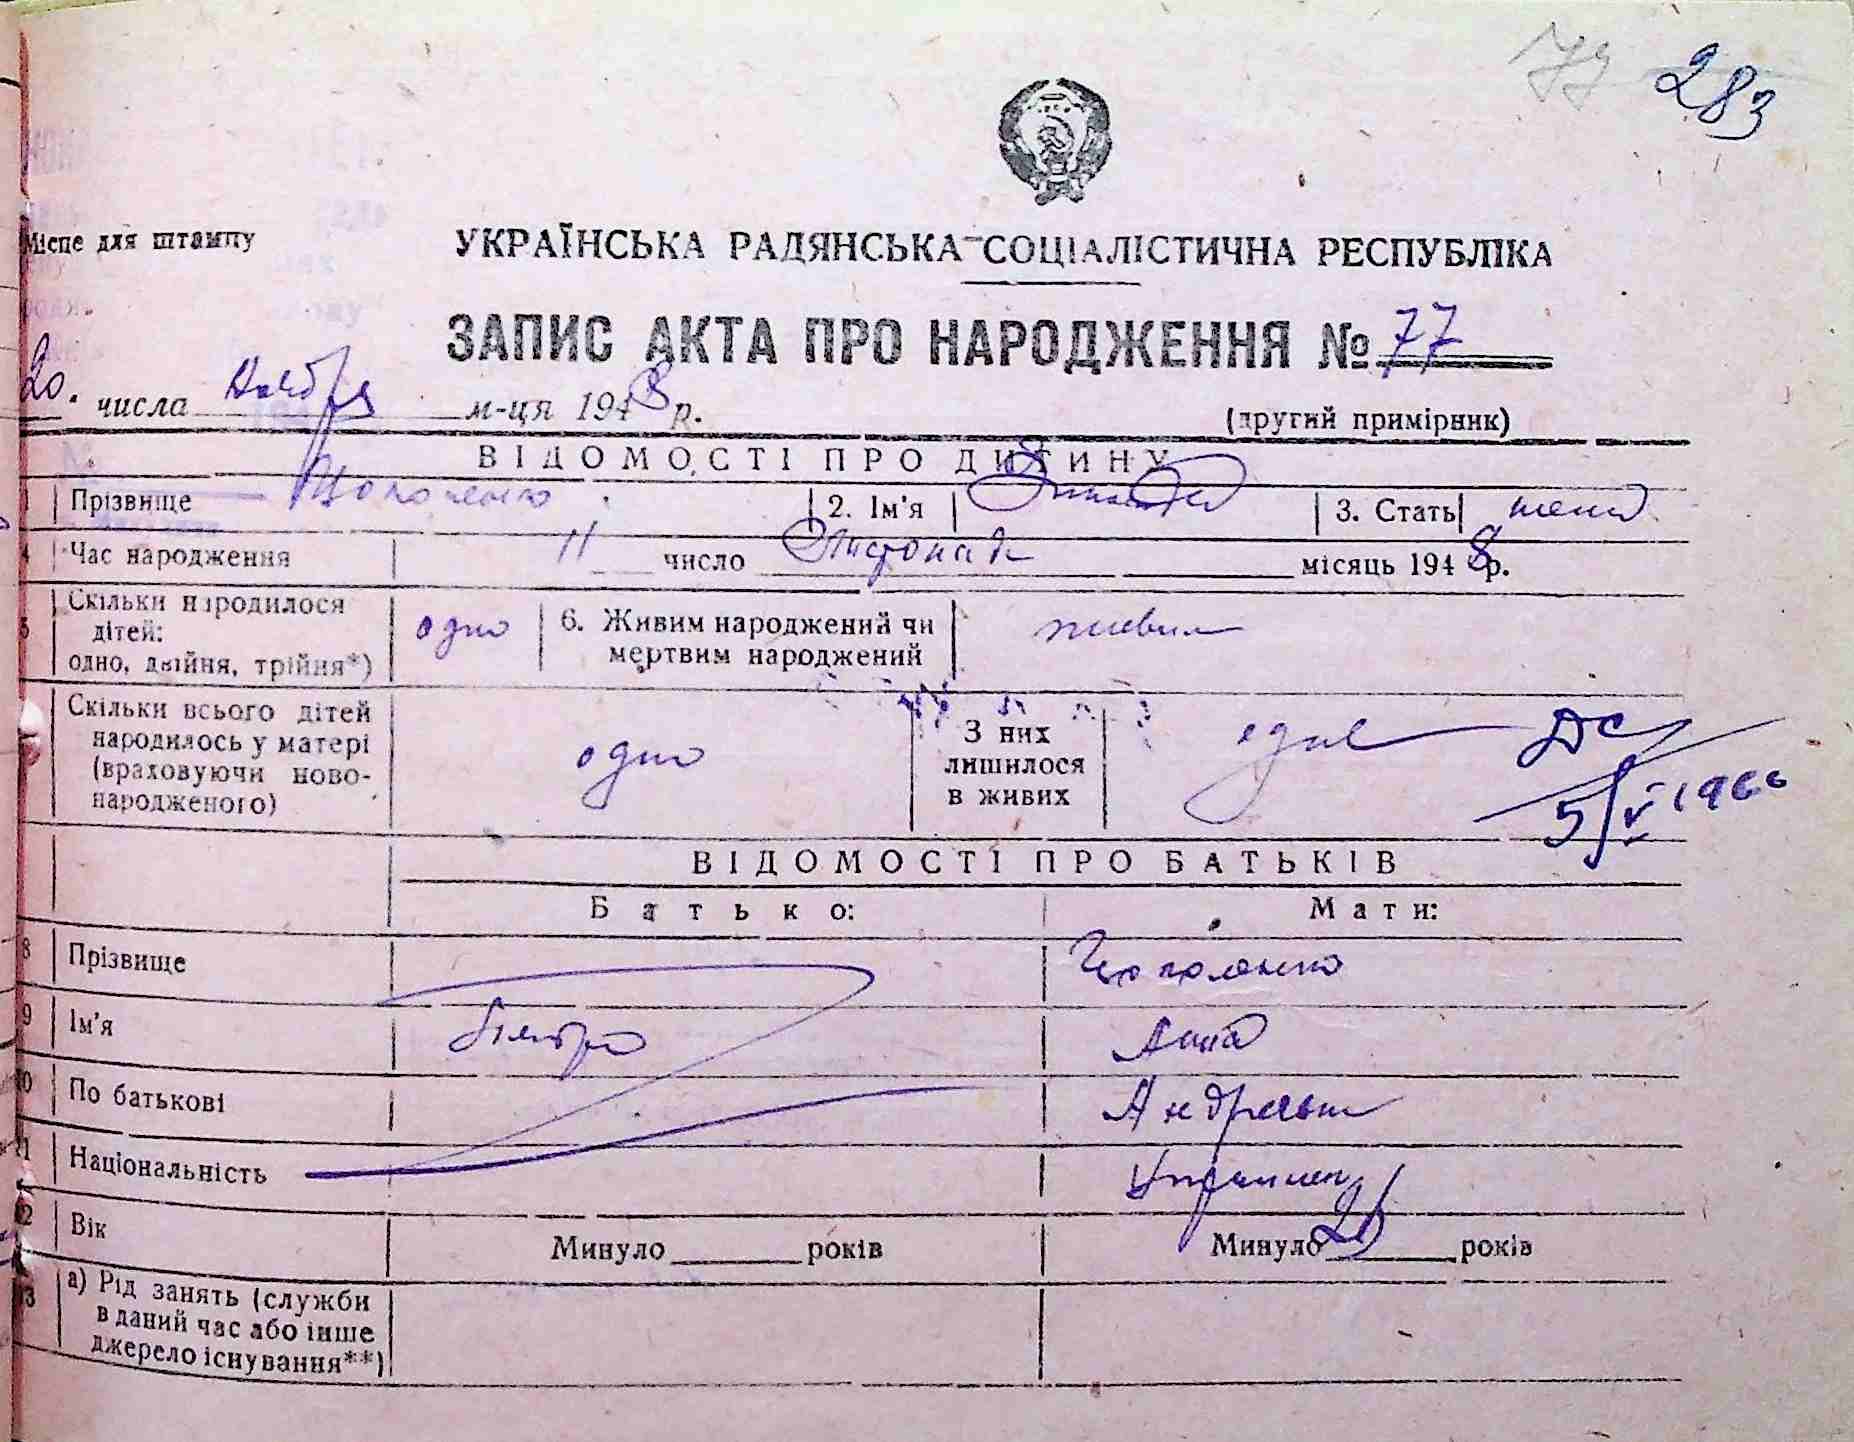 77 283
Місце для штампу
УКРАЇНСЬКА РАДЯНСЬКА СОЦІАЛІСТИЧНА РЕСПУБЛІКА
ЗАПИС АКТА ПРО НАРОДЖЕННЯ № 77
20. числа Ноября м-ця 1948 р.
(другий примірник)
ВІДОМОСТІ ПРО ДИТИНУ
Прізвище 2. Ім'я 3. Стать
4 Час народження 11 число Листопада місяць 1948 р.
5 Скільки народилося
дітей:
одно, двійня, трійня*)
одно
6. Живим народжений чи
мертвим народжений
живим
Скільки всього дітей
народилось у матері
(враховуючи ново-
народженого)
одно
З них
лишилося
в живих
одне
5/V 1966
ВІДОМОСТІ ПРО БАТЬКІВ
Батько: Мати:
8 Прізвище
9 Ім'я Анна
10 По батькові
11 Національність
12 Вік Минуло ______ років Минуло ______ років
13 а) Рід занять (служби
в даний час або інше
джерело існування**)